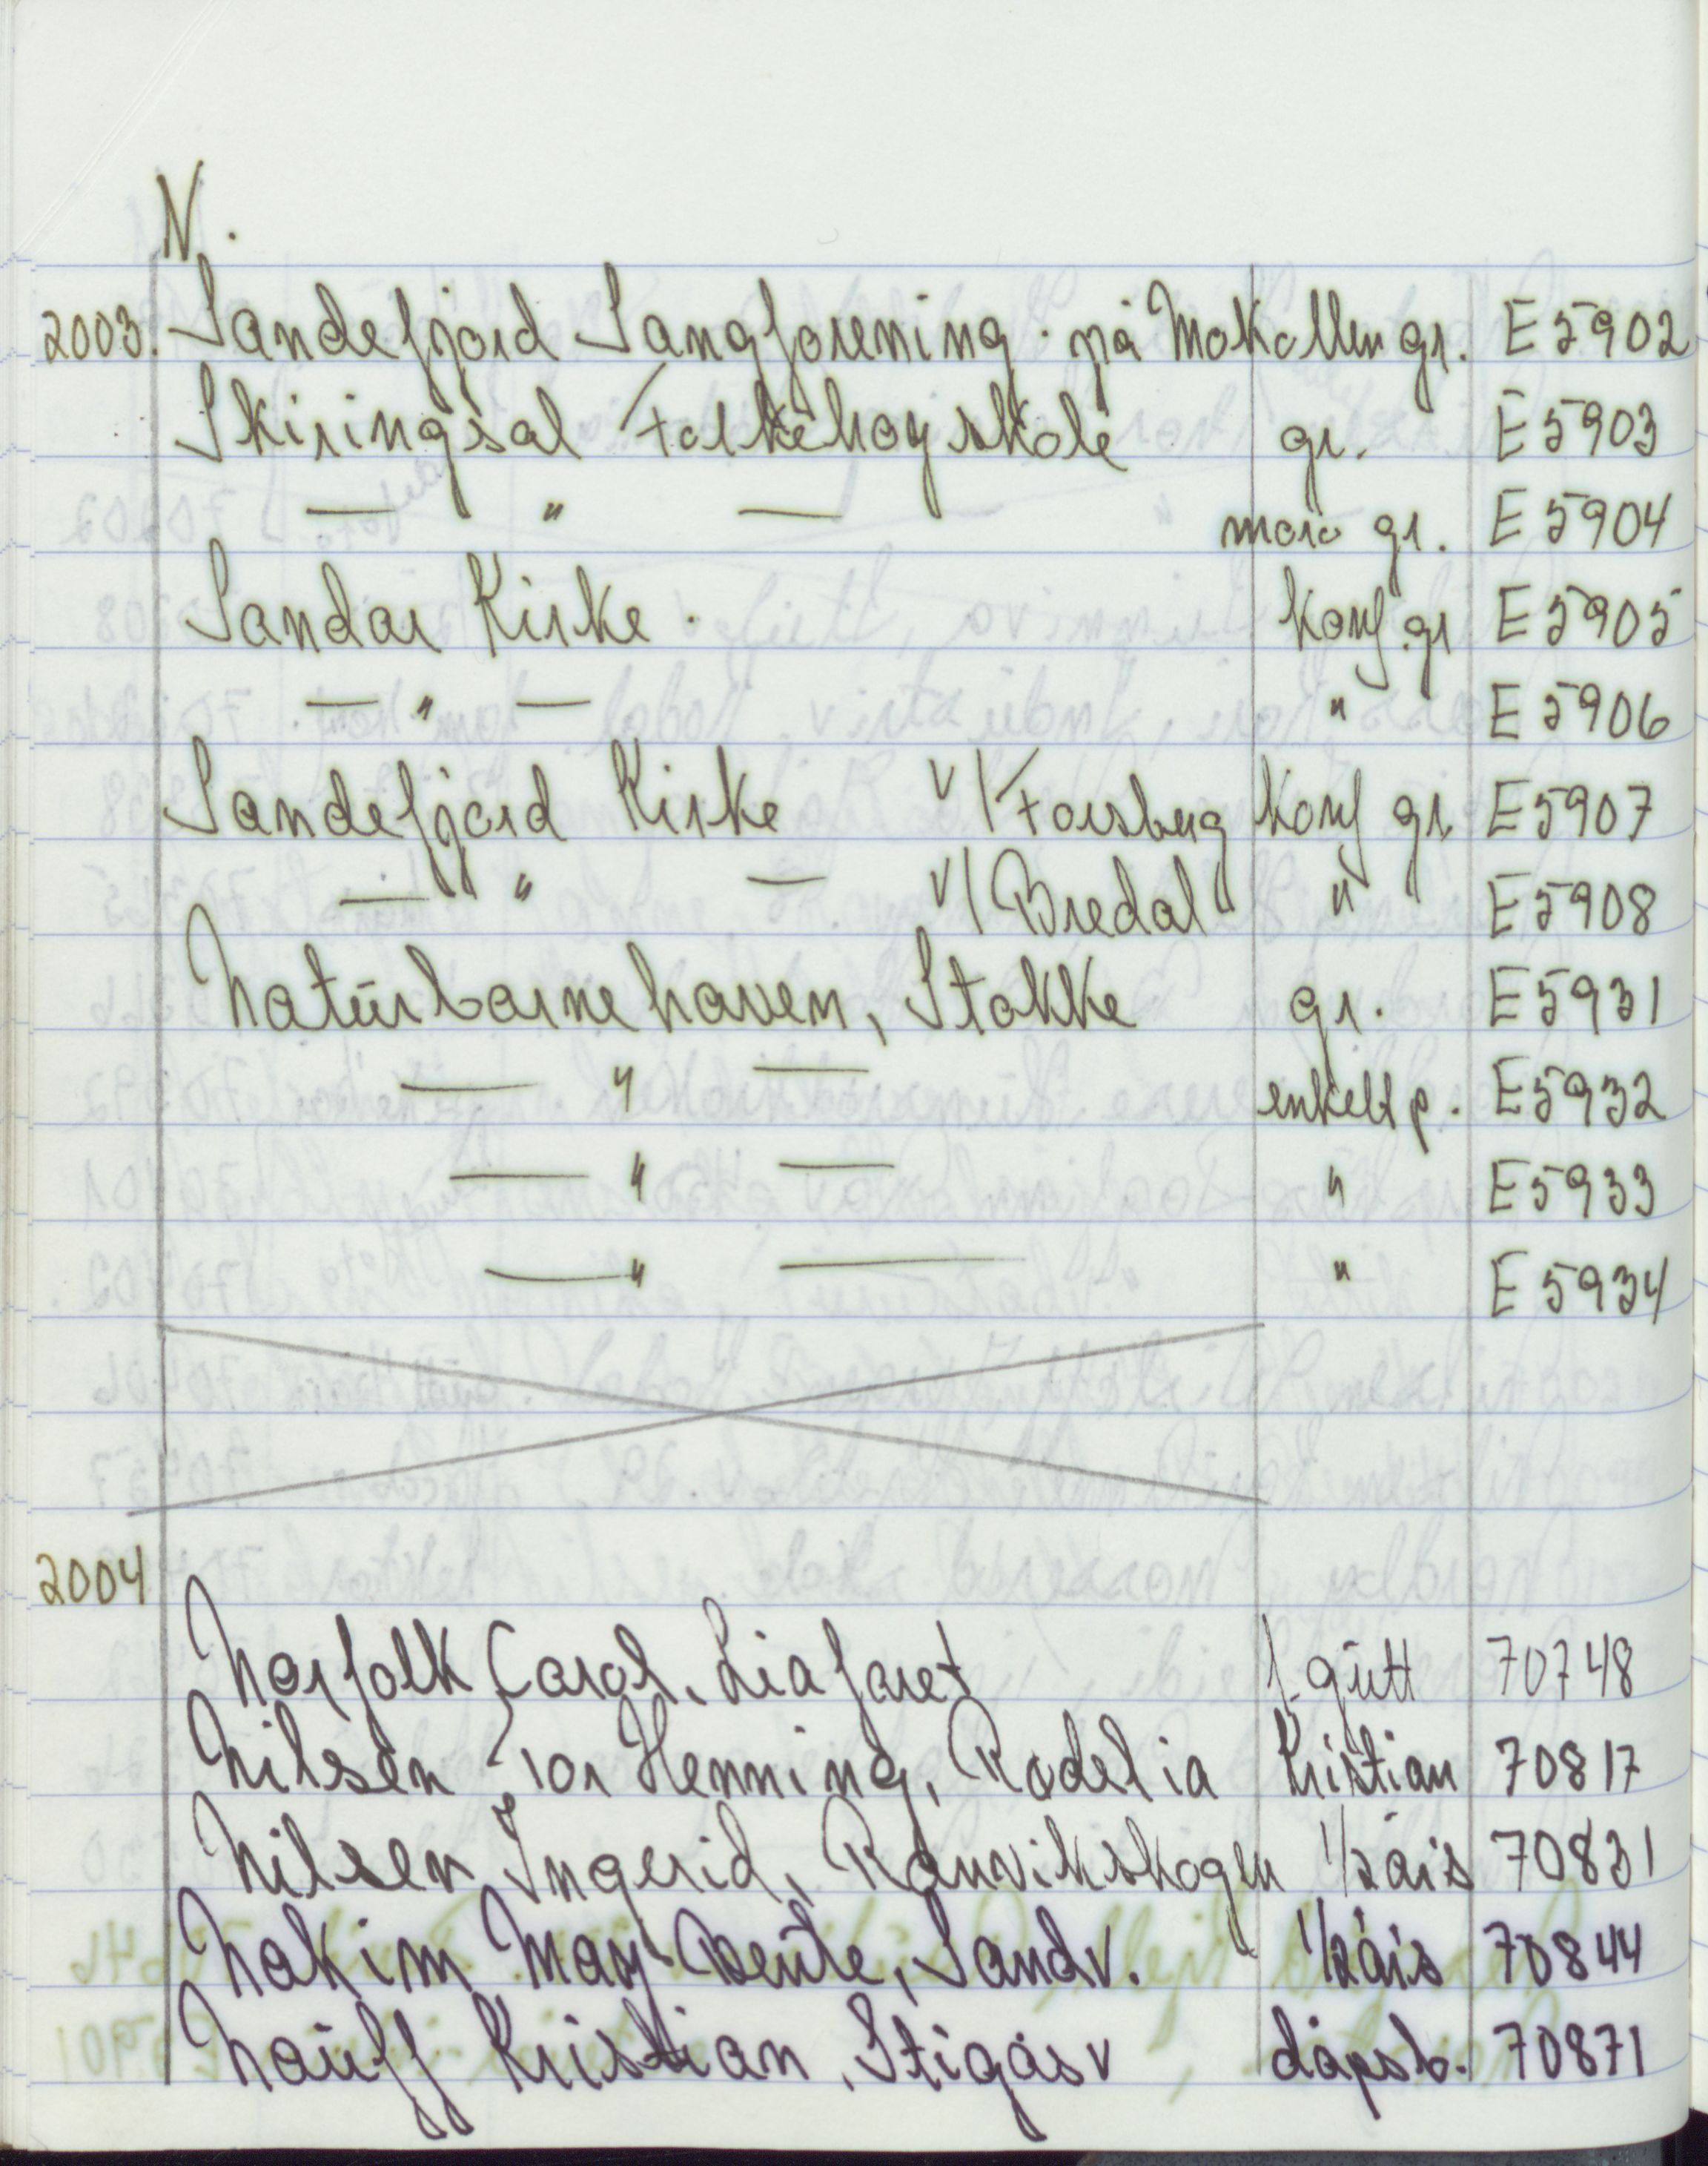 N.
2003. Sandefjord Sangforening. på Mokollen gr. E5902
Skiringsal Folkehøyskole gr. E5903
— " — moro gr. E5904
Sandar Kirke. konf gr E5905
— " — " E5906
Sandefjord Kirke v/Forsberg konf gr. E5907
— " — v/Bredal " E5908
Naturbarnehaven, Stokke gr. E5931
— " — enkelt p. E5932
— " — " E5933
— " — " E5934
2004
Norfolk Carol. Liafaret f. gutt 70748
Nilsen Tor Henning, Rødslia Kristian 70817
Nilsen Ingerid, Ranvikskogen 1/2 års 70831
Nakim May-Bente, Sandv. 1/2 års 70844
Nauff Kristian, Stigås v dåpsb. 70871